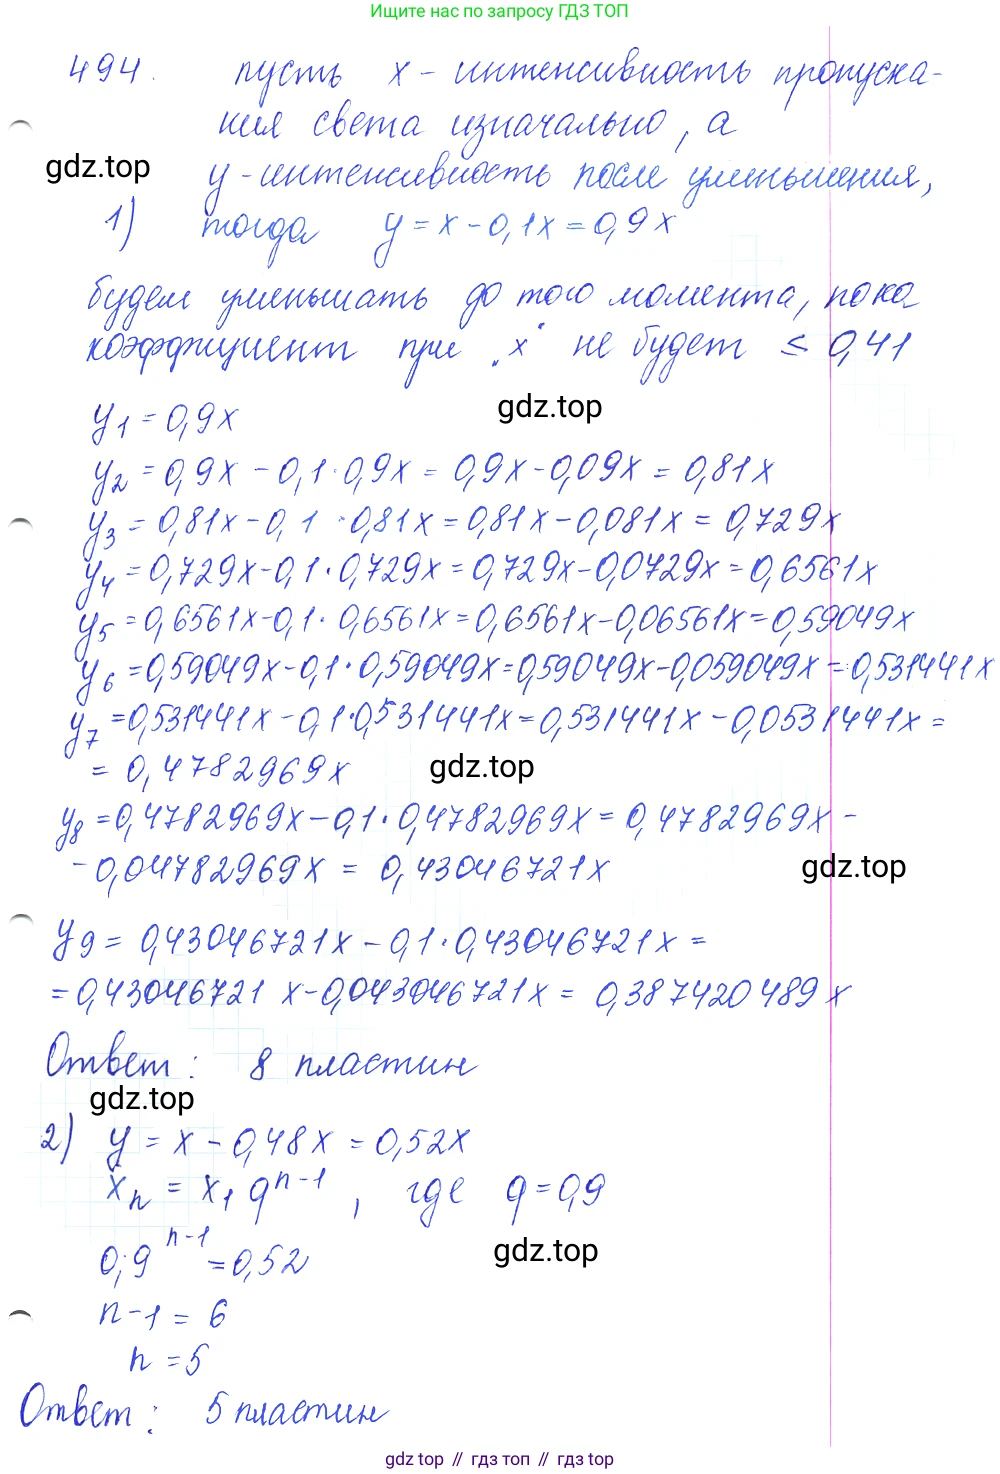 Ищите нас по запросу ГДЗ ТОП
494. пусть x - интенсивность пропуска-
ния света изначально, а
gdz.top
y - интенсивность после уменьшения,
1) тогда y = x - 0,1x = 0,9x
будем уменьшать до того момента, пока
коэффициент при „x“ не будет ≤ 0,41
gdz.top
y₁ = 0,9x
y₂ = 0,9x - 0,1·0,9x = 0,9x - 0,09x = 0,81x
y₃ = 0,81x - 0,1·0,81x = 0,81x - 0,081x = 0,729x
y₄ = 0,729x - 0,1·0,729x = 0,729x - 0,0729x = 0,6561x
y₅ = 0,6561x - 0,1·0,6561x = 0,6561x - 0,06561x = 0,59049x
y₆ = 0,59049x - 0,1·0,59049x = 0,59049x - 0,059049x = 0,531441x
y₇ = 0,531441x - 0,1·0,531441x = 0,531441x - 0,0531441x =
= 0,4782969x
gdz.top
y₈ = 0,4782969x - 0,1·0,4782969x = 0,4782969x -
- 0,04782969x = 0,43046721x
gdz.top
y₉ = 0,43046721x - 0,1·0,43046721x =
= 0,43046721x - 0,043046721x = 0,387420489x
Ответ: 8 пластин
gdz.top
2) y = x - 0,48x = 0,52x
xₙ = x₁qⁿ⁻¹, где q = 0,9
0,9ⁿ⁻¹ = 0,52
gdz.top
n - 1 = 6
n = 5
Ответ: 5 пластин
gdz top // гдз топ // gdz.top